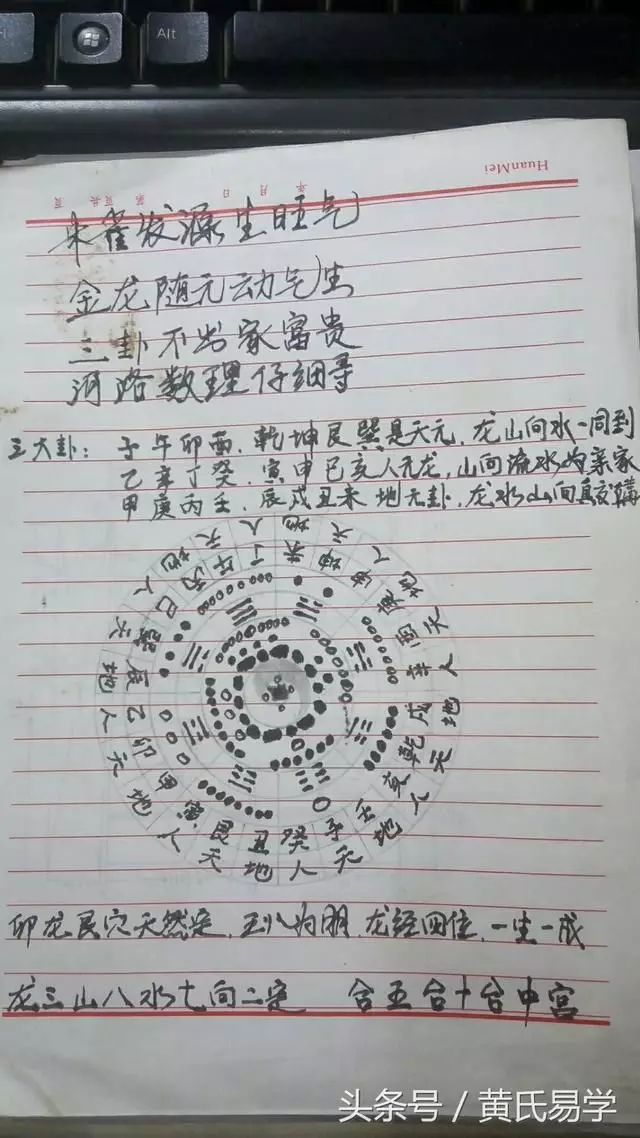 Alt
HuanMei
年 月 日 第 页共 页
朱雀发源生旺气
金龙随元动气生
三卦不出家富贵
河路数理仔细寻
三大卦：子午卯酉，乾坤艮巽是天元，龙山向水一同到
乙辛丁癸，寅申巳亥人元龙，山向流水为亲家
甲庚丙壬，辰戌丑未 地元卦，龙水山向真
丙 午 丁 未 坤 申 庚 酉 辛 戌 乾 亥 壬 子 癸 丑 艮 寅 甲 卯 乙 辰 巽 巳
地 天 人 地 天 人 地 天 人 地 天 人 地 天 人 地 天 人 地 天 人 地 天 人
卯龙艮穴天然定， 为朋，龙经四位，一生一成
龙三山八水七向二定 合五合十合中宫
头条号 / 黄氏易学